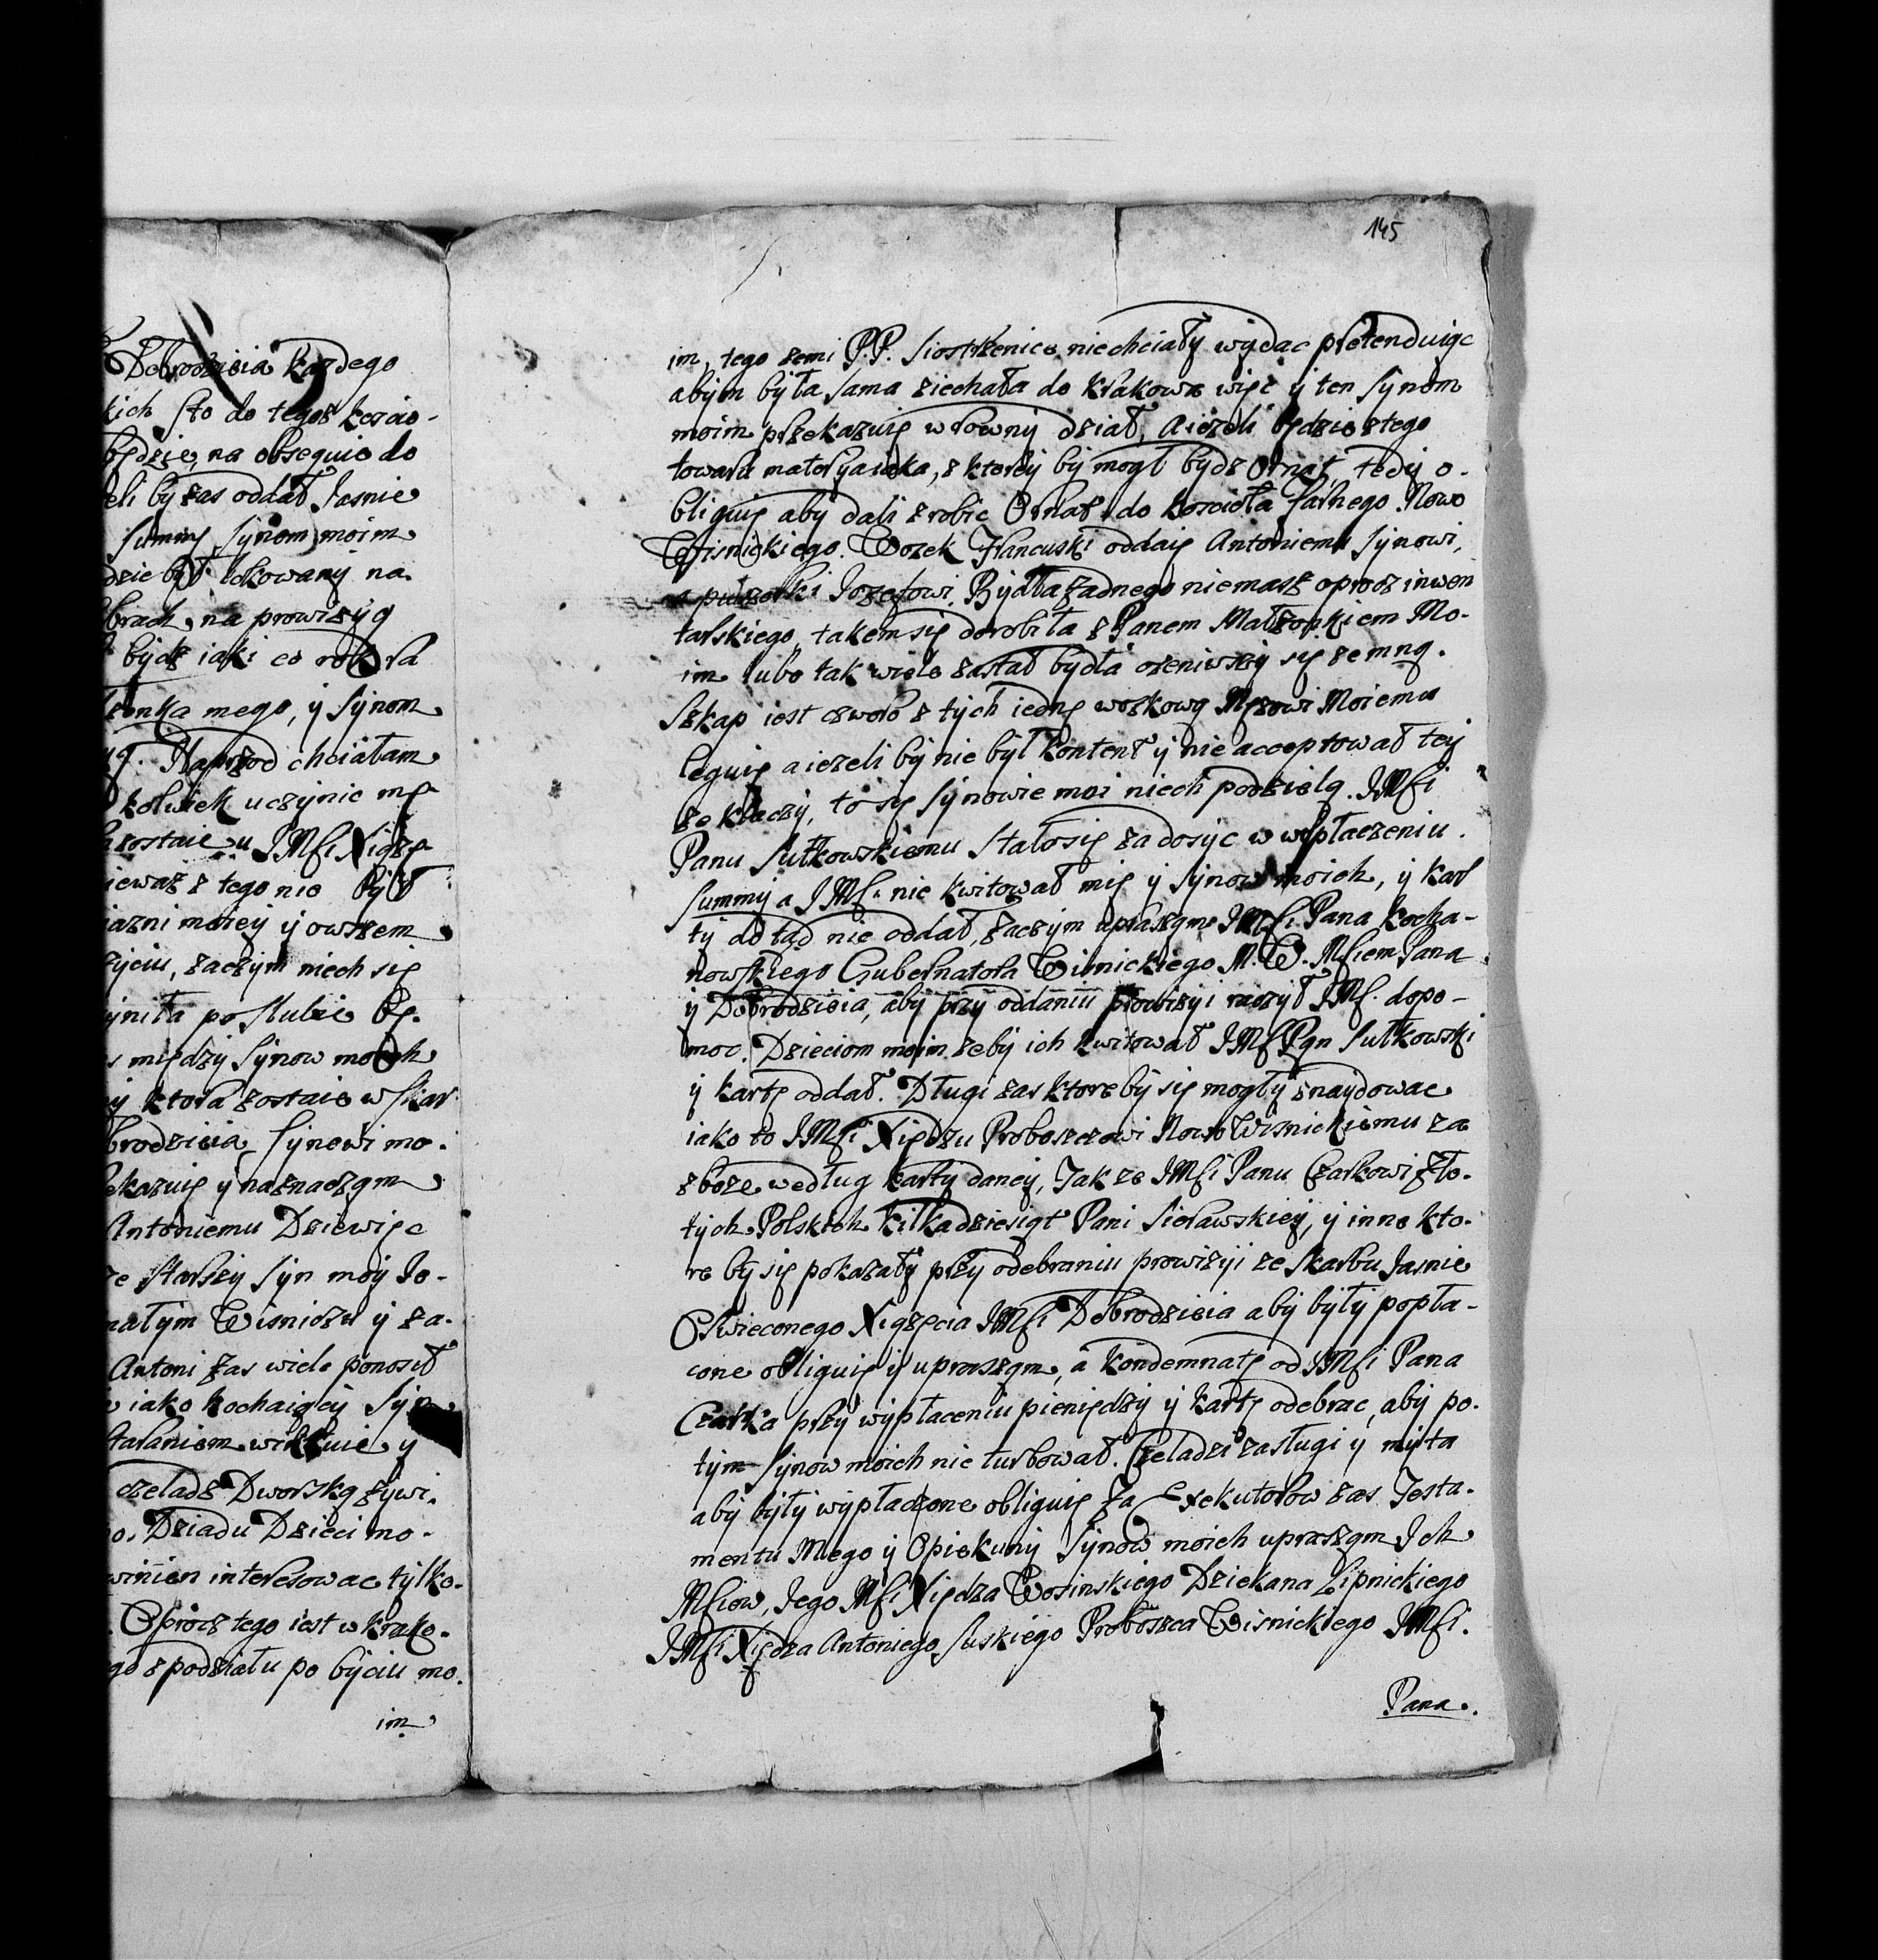 Dobrodzieia kazdego
kich sto do tegoż koscio-
będzie, na obsequie do
eli by zas oddał Jasnie
summy synom moim
dzie był lokowany na
brach, na prowizyą
bydz iaki co rok ra
żonka mego, y synom
Naprzod chciałam
kolwiek uczynic mę
zostaie u JMści Xiążę
iewaz z tego nic był
iazni moiey y owszem
życiu, zaczym niech się
yniła po slubie Bę
między synow moich
y ktora zostaie w skar
brodzieia, synowi mo-
ekazuię y naznacząm
Antoniemu Dziewięc
ze starszy syn moy Jo-
małym Wisniczu y za-
Antoni zas wiele ponosił
iako kochaiący syn
staraniem wiktuie y
czeladz Dworską żywi.
Dziadu Dzieci mo-
winien interesowac tylko
Oprocz tego iest w Krako-
go z podziału po byciu mo-
im
145
im, tego zemi P.P. Siostrzenice niechciały wydac pretenduiąc
abym była sama ziechała do Krakowa więc y ten synom
moim przekazuię w rowny dział, A ieżeli będzie z tego
towaru materya iaka, z ktorey by mogł bydz Ornat, tedy o-
bliguię aby dali zrobic Ornat do koscioła Farnego Nowo
Wisnickiego. Wozek Francuski oddaię Antoniemu synowi,
a puzdrki Jozefowi. Bydła żadnego niemasz oprocz inwen
tarskiego, takem się dorobiła z Panem Małżonkiem Mo-
im lubo tak wiele zastał bydła ożeniwszy się zemną.
Szkap iest czworo z tych iednę wozkową Mężowi Moiemu
leguię a ieżeli by nie był kontent y nie acceptował tey
ze klaczy, to się synowie moi niech podzielą. JMści
Panu Sułkowskiemu stało się zadosyc w wypłaczeniu
summy a JMść nie kwitował mię y synow moich, y kar
ty do tąd nie oddał, zaczym upraszam JMści Pana Kocha-
nowskiego Gubernatora Wisnickiego M. W. Mściem Pana
y Dobrodzieia, aby przy oddaniu prowizyi raczył JMść dopo-
moc Dzieciom moim żeby ich kwitował JMść Pan Sułkowski
y kartę oddał. Długi zas ktore by się mogły znaydowac
iako to JMści Xiędzu Proboszczowi Nowo Wisnickiemu za
zboze według karty daney, Jak ze JMści Panu Czarkowi Zło-
tych Polskich kilkadziesiąt Pani Sierawskiey, y inne kto-
re by się pokazały przy odebraniu prowizyi ze skarbu Jasnie
Oswieconego Xiążęcia JMści Dobrodzieia aby były popła-
cone obliguię y uprasząm, a kondemnatę od JMści Pana
Czarka przy wypłaceniu pieniędzy y kartę odebrac, aby po-
tym synow moich nie turbował. Czeladzi zasługi y myta
aby były wypłaczone obliguię Za Exekutorow zas Testa-
mentu Mego y Opiekuny synow moich uprasząm Ich
Mściow, Jego Mści Xiędza Wosinskiego Dziekana Lipnickiego
JMści Xiędza Antoniego Suskiego Proboszca Wisnickiego JMści
Pana